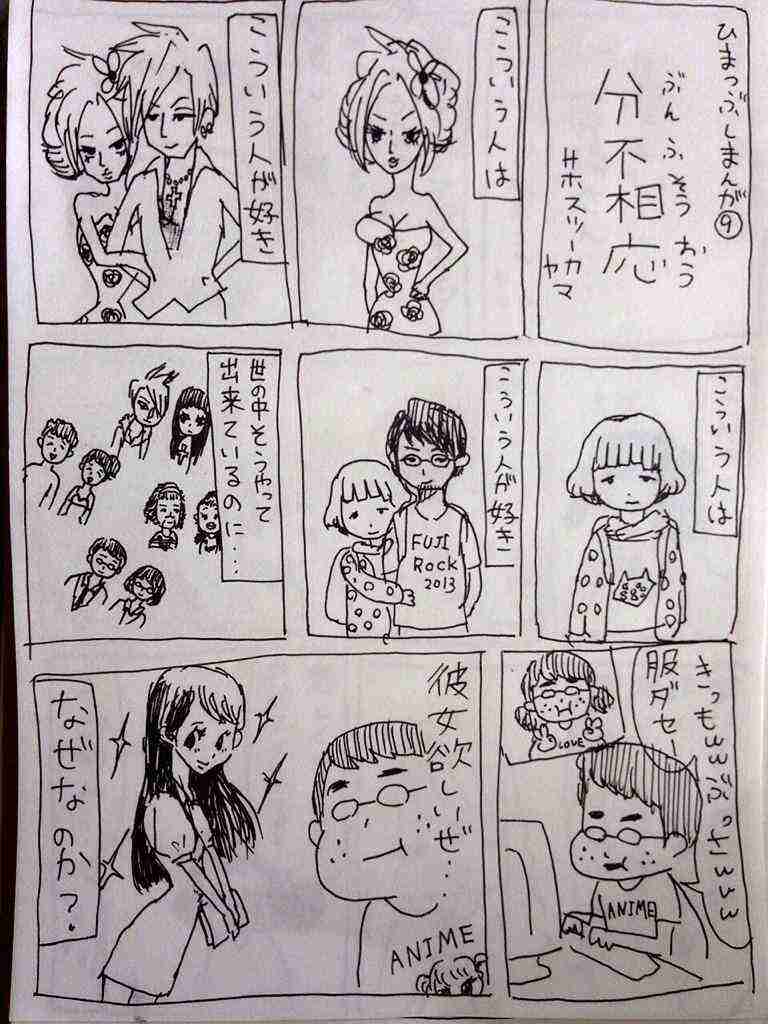 ひまつぶしまんが⑨
ぶんふそうおう
分不相応
#ホスツーカヤマ
こういう人は
こういう人が好き
こういう人は
こういう人が好き
FUJI
Rock
2013
世の中そうやって
出来ているのに…
きっもwwぶっさwww
服ダセー
LOVE
ANIME
彼女欲しいぜ…
ANIME
なぜなのか？